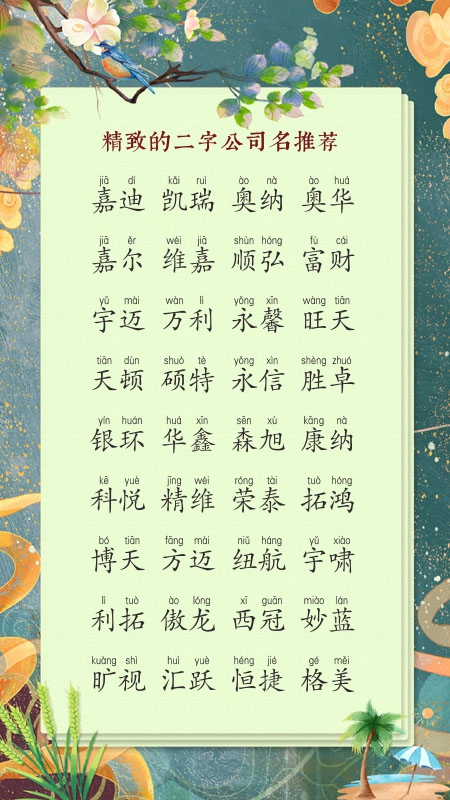 精致的二字公司名推荐
jiā dí kǎi ruì ào nà ào huá
嘉迪 凯瑞 奥纳 奥华
jiā ěr wéi jiā shùn hóng fù cái
嘉尔 维嘉 顺弘 富财
yǔ mài wàn lì yǒng xīn wàng tiān
宇迈 万利 永馨 旺天
tiān dùn shuò tè yǒng xìn shèng zhuó
天顿 硕特 永信 胜卓
yín huán huá xīn sēn xù kāng nà
银环 华鑫 森旭 康纳
kē yuè jīng wéi róng tài tuò hóng
科悦 精维 荣泰 拓鸿
bó tiān fāng mài niǔ háng yǔ xiào
博天 方迈 纽航 宇啸
lì tuò ào lóng xī guān miào lán
利拓 傲龙 西冠 妙蓝
kuàng shì huì yuè héng jié gé měi
旷视 汇跃 恒捷 格美